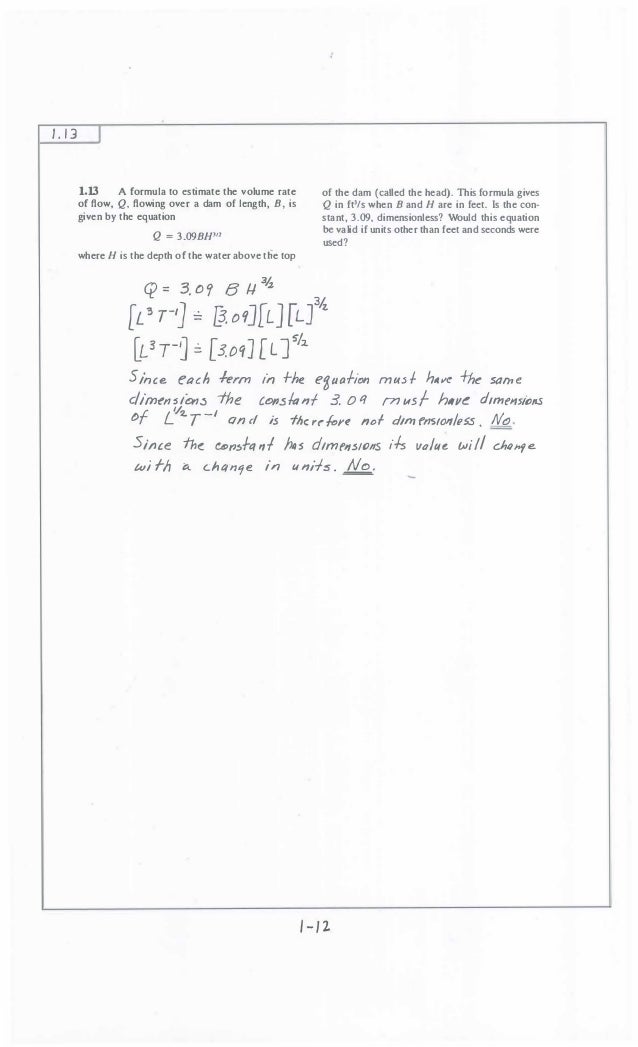 1.13
1.13 A formula to estimate the volume rate
of flow, Q, flowing over a dam of length, B, is
given by the equation
Q = 3.09BH^3/2
where H is the depth of the water above the top
of the dam (called the head). This formula gives
Q in ft³/s when B and H are in feet. Is the con-
stant, 3.09, dimensionless? Would this equation
be valid if units other than feet and seconds were
used?
Q = 3.09 B H^3/2
[L³ T⁻¹] ≐ [3.09][L][L]^3/2
[L³ T⁻¹] ≐ [3.09][L]^5/2
Since each term in the equation must have the same
dimensions the constant 3.09 must have dimensions
of L^1/2 T⁻¹ and is therefore not dimensionless. No.
Since the constant has dimensions its value will change
with a change in units. No.
1-12